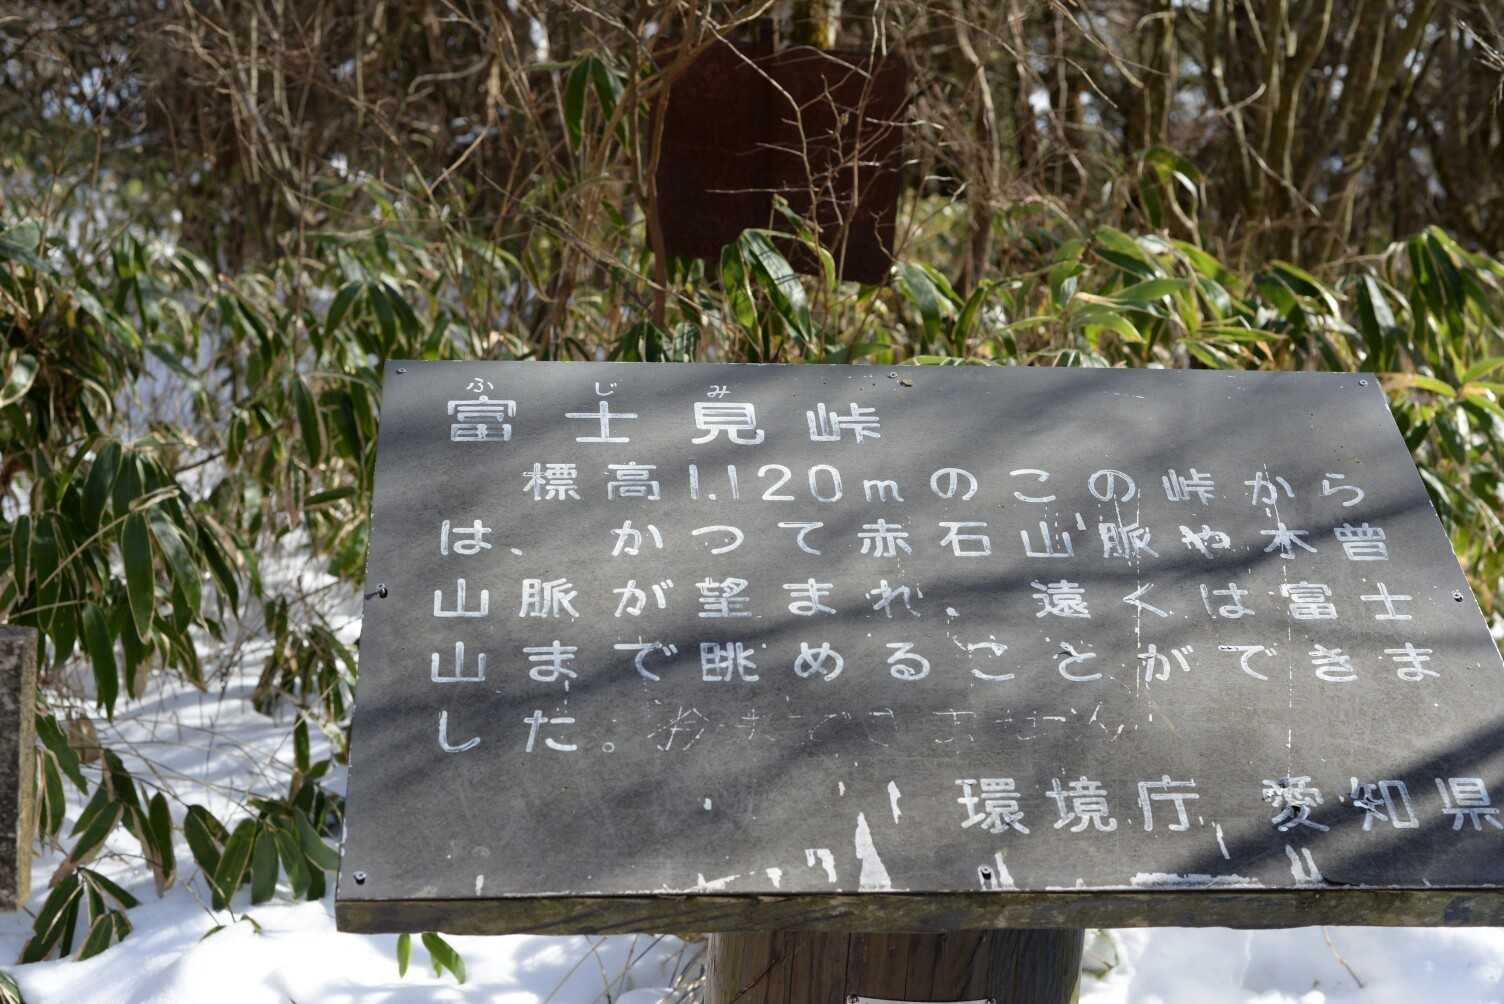 ふじみ
富士見峠
標高1.120mのこの峠から
は、かつて赤石山脈や木曽
山脈が望まれ、遠くは富士
山まで眺めることができま
した。
環境庁 愛知県